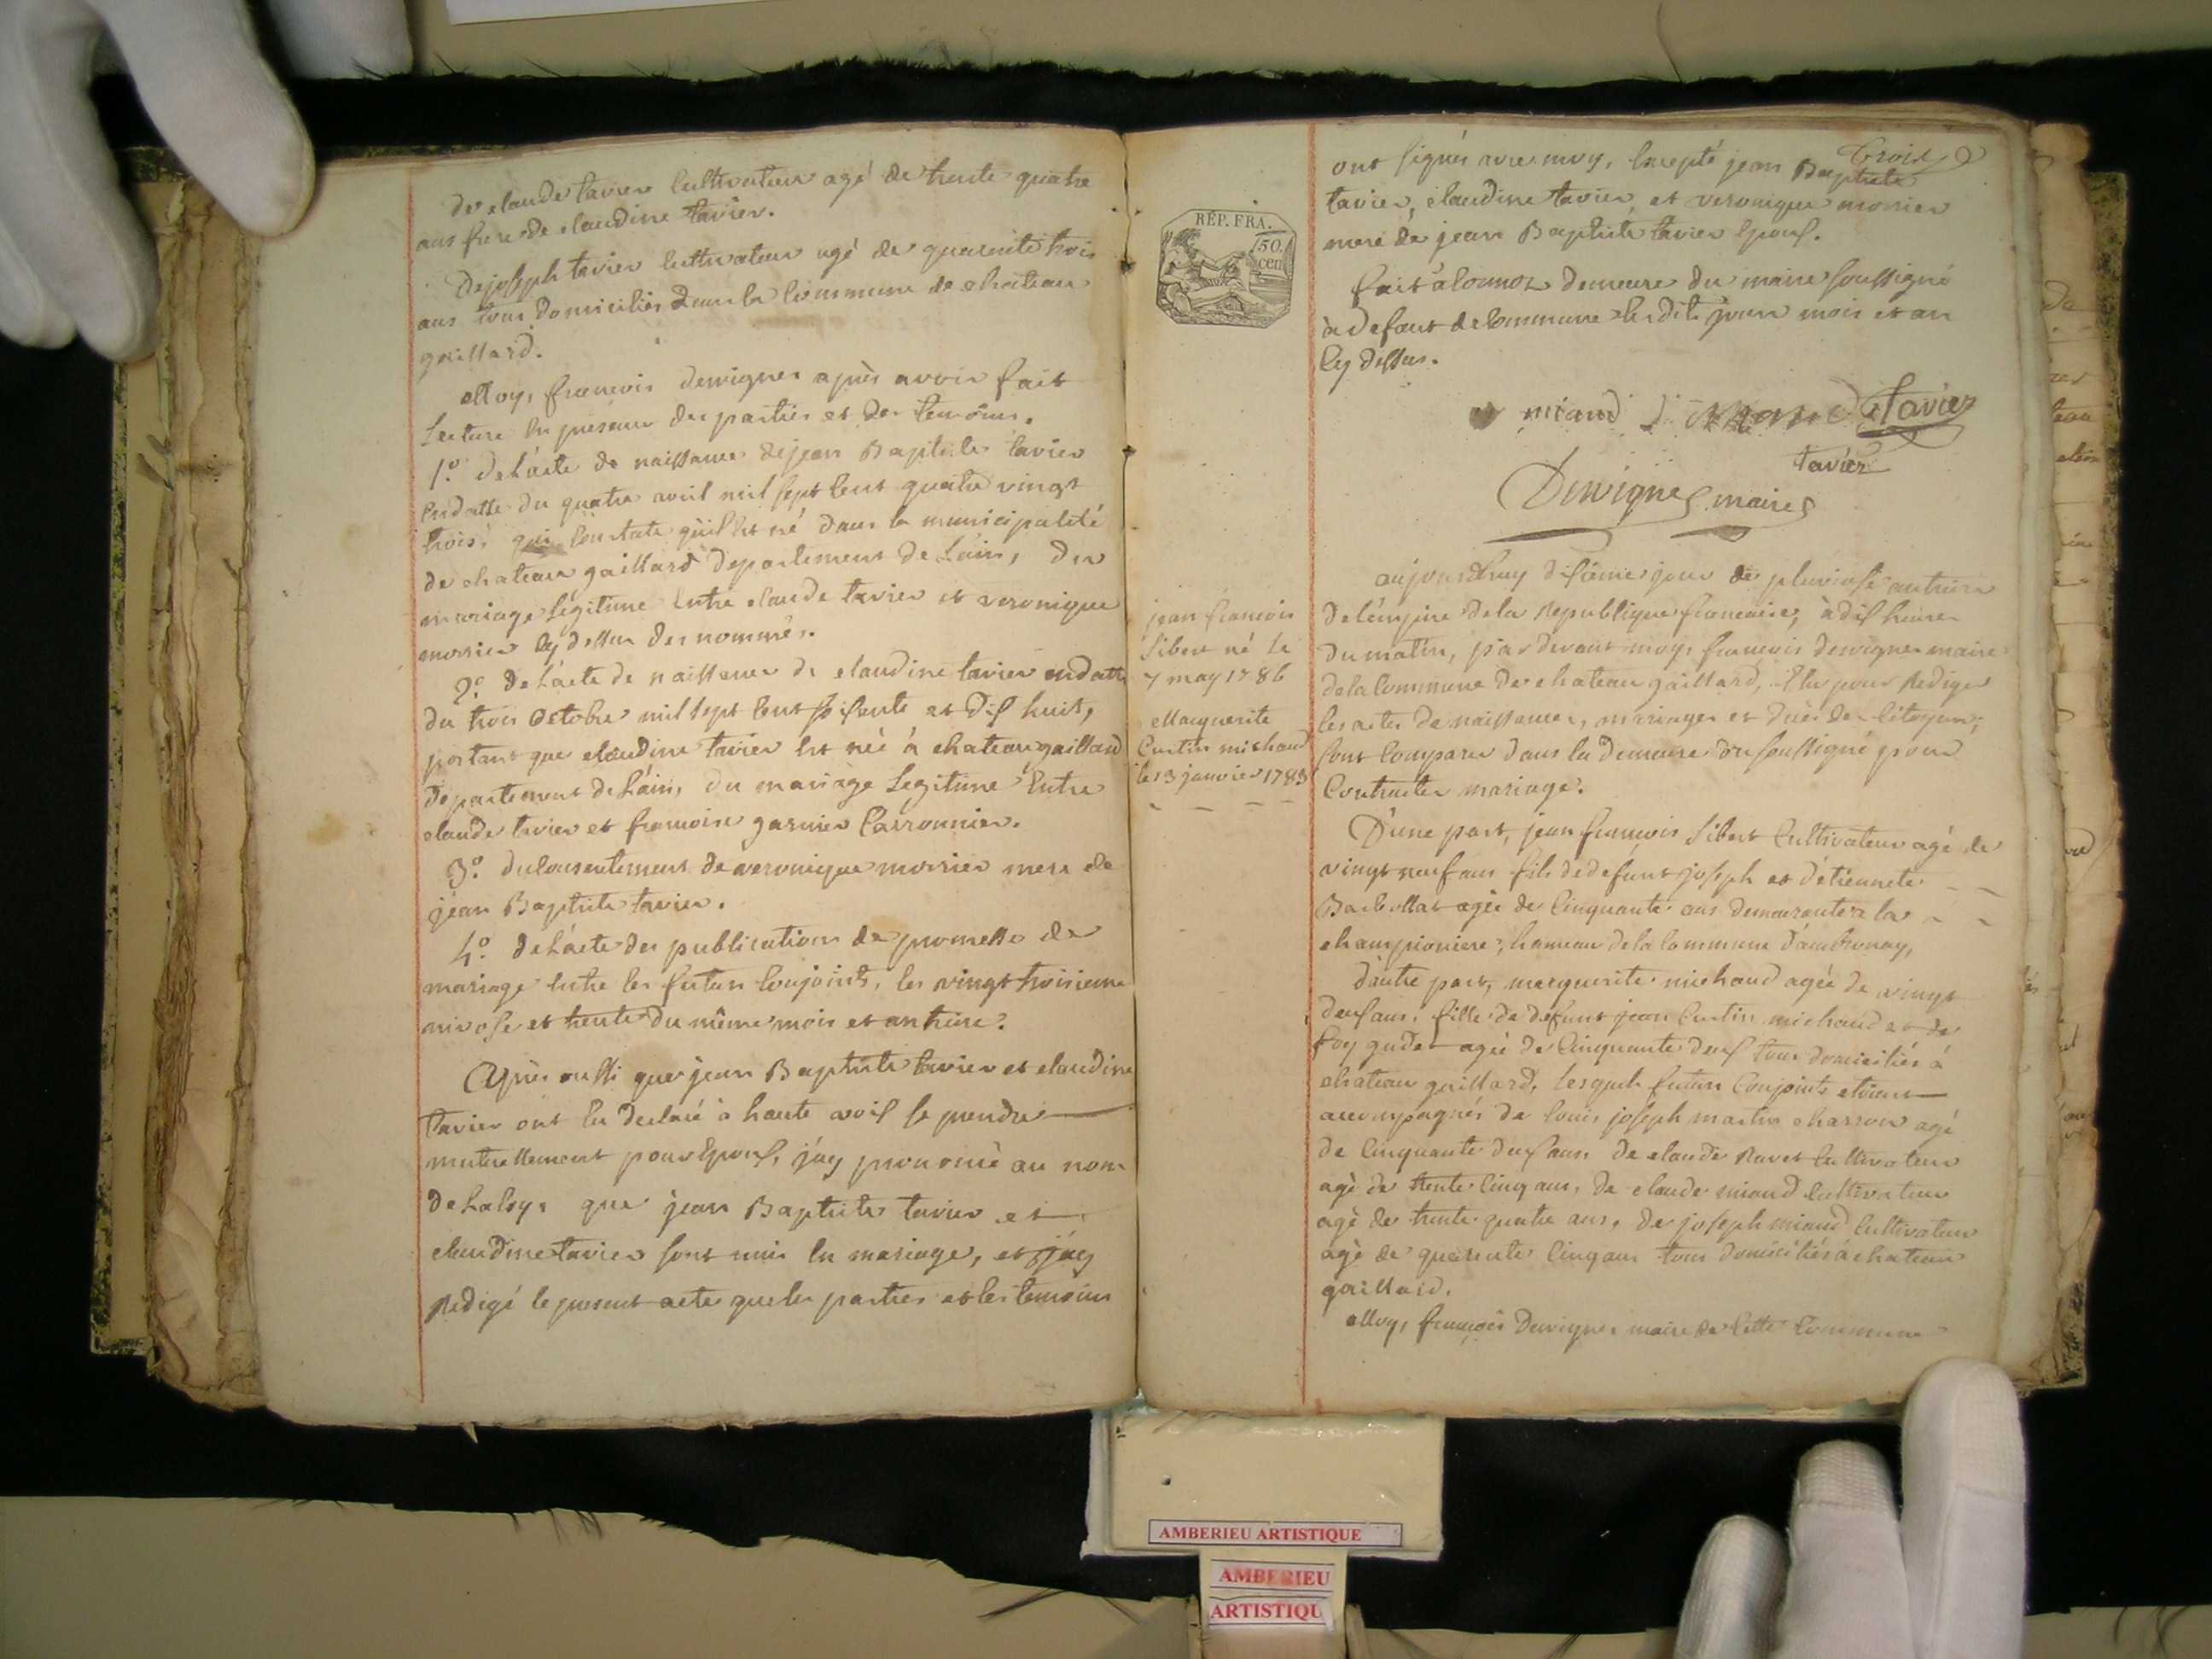 de claude tavier cultivateur agé de trente quatre
ans frere de claudine tavier.
de joseph tavier cultivateur agé de quarente trois
ans tous domiciliés dans la commune de chateau
gaillard.
Moy, francois dervignes après avoir fait
Lecture en presence des parties et des temoins.
1º. de L'acte de naissance de jean Baptiste tavier
En datte du quatre avril mil sept cent quatre vingt
trois, qui constate qu'il est né dans la municipalité
de chateau gaillard departement de L'ain, du
mariage Legitime Entre claude tavier et veronique
monier cy dessus denommés.
2º. de L'acte de naissance de claudine tavier en datte
du trois octobre mil sept cent soixante et dix huit,
portant que claudine tavier est née à chateau gaillard
departement de L'ain, du mariage Legitime Entre
claude tavier et francoise garnier Carronnier.
3º. du consentement de veronique monier mere de
jean Baptiste tavier.
4º. de L'acte des publications de promesse de
mariage Entre les futurs conjoints, les vingt troisieme
nivose et trente du même mois et an treize.
Après aussi que jean Baptiste tavier et claudine
tavier ont Eu declaré à haute voix se prendre
mutuellement pour Epoux, j'ay prononcé au nom
de La loy, que jean Baptiste tavier et
claudine tavier sont unis En mariage, et j'ay
Redigé le present acte que les parties et les temoins
trois
ont signés avec moy, Excepté jean Baptiste
tavier, claudine tavier, et veronique monier
mere de jean Baptiste tavier Epoux.
fait à demeure du maire soussigné
à defaut de commune Les dits jour mois et an
Cy dessus.
miand tavier
tavier
Dervignes maire
RÉP. FRA.
50.
cen
jean francois
Sibert né Le
7 may 1786
Marguerite
Curtin michaud
le 13 janvier 1783
aujourdhuy dixième jour de pluviose an treize
de L'empire de la Republique francaise, à dix heures
du matin, par devant moy, francois dervignes maire
de la commune de chateau gaillard, Elu pour Rediger
les actes de naissances, mariages et décès des Citoyens;
sont comparus dans la demeure du soussigné pour
Contracter mariage.
D'une part, jean francois Sibert Cultivateur agé de
vingt neuf ans fils de defunt joseph et d'étiennete
Barbollat agée de Cinquante ans demeurante a la
championiere, hameau de la commune d'ambronay,
d'autre part, marguerite michaud agée de vingt
deux ans, fille de defunt jean Curtin michaud et de
foy agée de Cinquante deux tous domiciliés à
chateau gaillard, Lesquels futurs Conjoints etoient
accompagnés de louis joseph martin charron agé
de Cinquante deux ans, de claude Ravet Cultivateur
agé de trente cinq ans, de claude miand Cultivateur
agé de trente quatre ans, de joseph miand Cultivateur
agé de quarente cinq ans tous domiciliés à chateau
gaillard.
Moy, françois Dervignes maire de Cette Commune
AMBERIEU ARTISTIQUE
AMBERIEU
ARTISTIQU